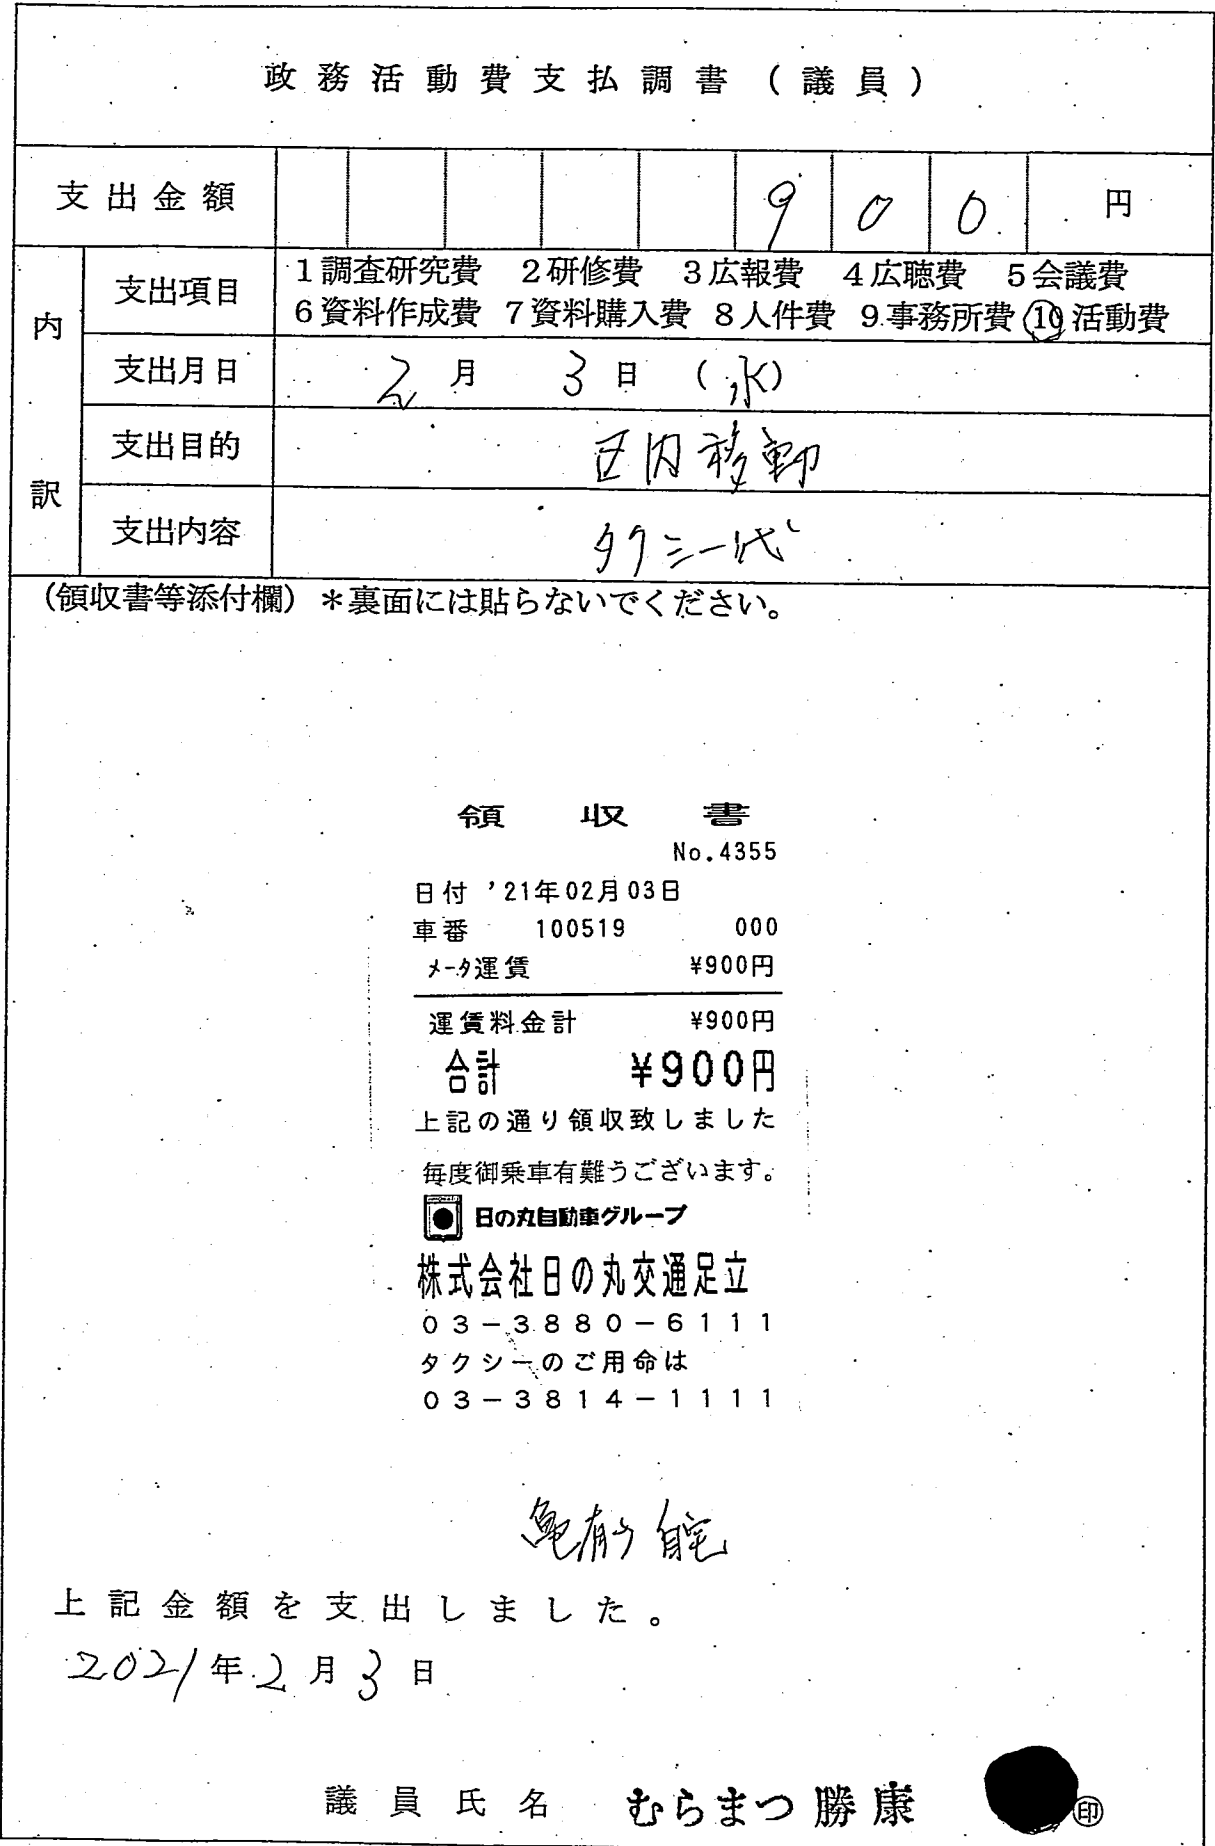 政務活動費支払調書(議員)
支出金額 900 円
内訳
支出項目 1調査研究費 2研修費 3広報費 4広聴費 5会議費
6資料作成費 7資料購入費 8人件費 9事務所費 ⑩活動費
支出月日 2月 3日 (水)
支出目的 区内移動
支出内容 タクシー代
(領収書等添付欄)*裏面には貼らないでください。
領収書
No.4355
日付 '21年02月03日
車番 100519 000
メータ運賃 ¥900円
運賃料金計 ¥900円
合計 ¥900円
上記の通り領収致しました
毎度御乗車有難うございます。
日の丸自動車グループ
株式会社日の丸交通足立
03-3880-6111
タクシーのご用命は
03-3814-1111
亀有 自宅
上記金額を支出しました。
2021年2月3日
議員氏名 むらまつ勝康 ㊞